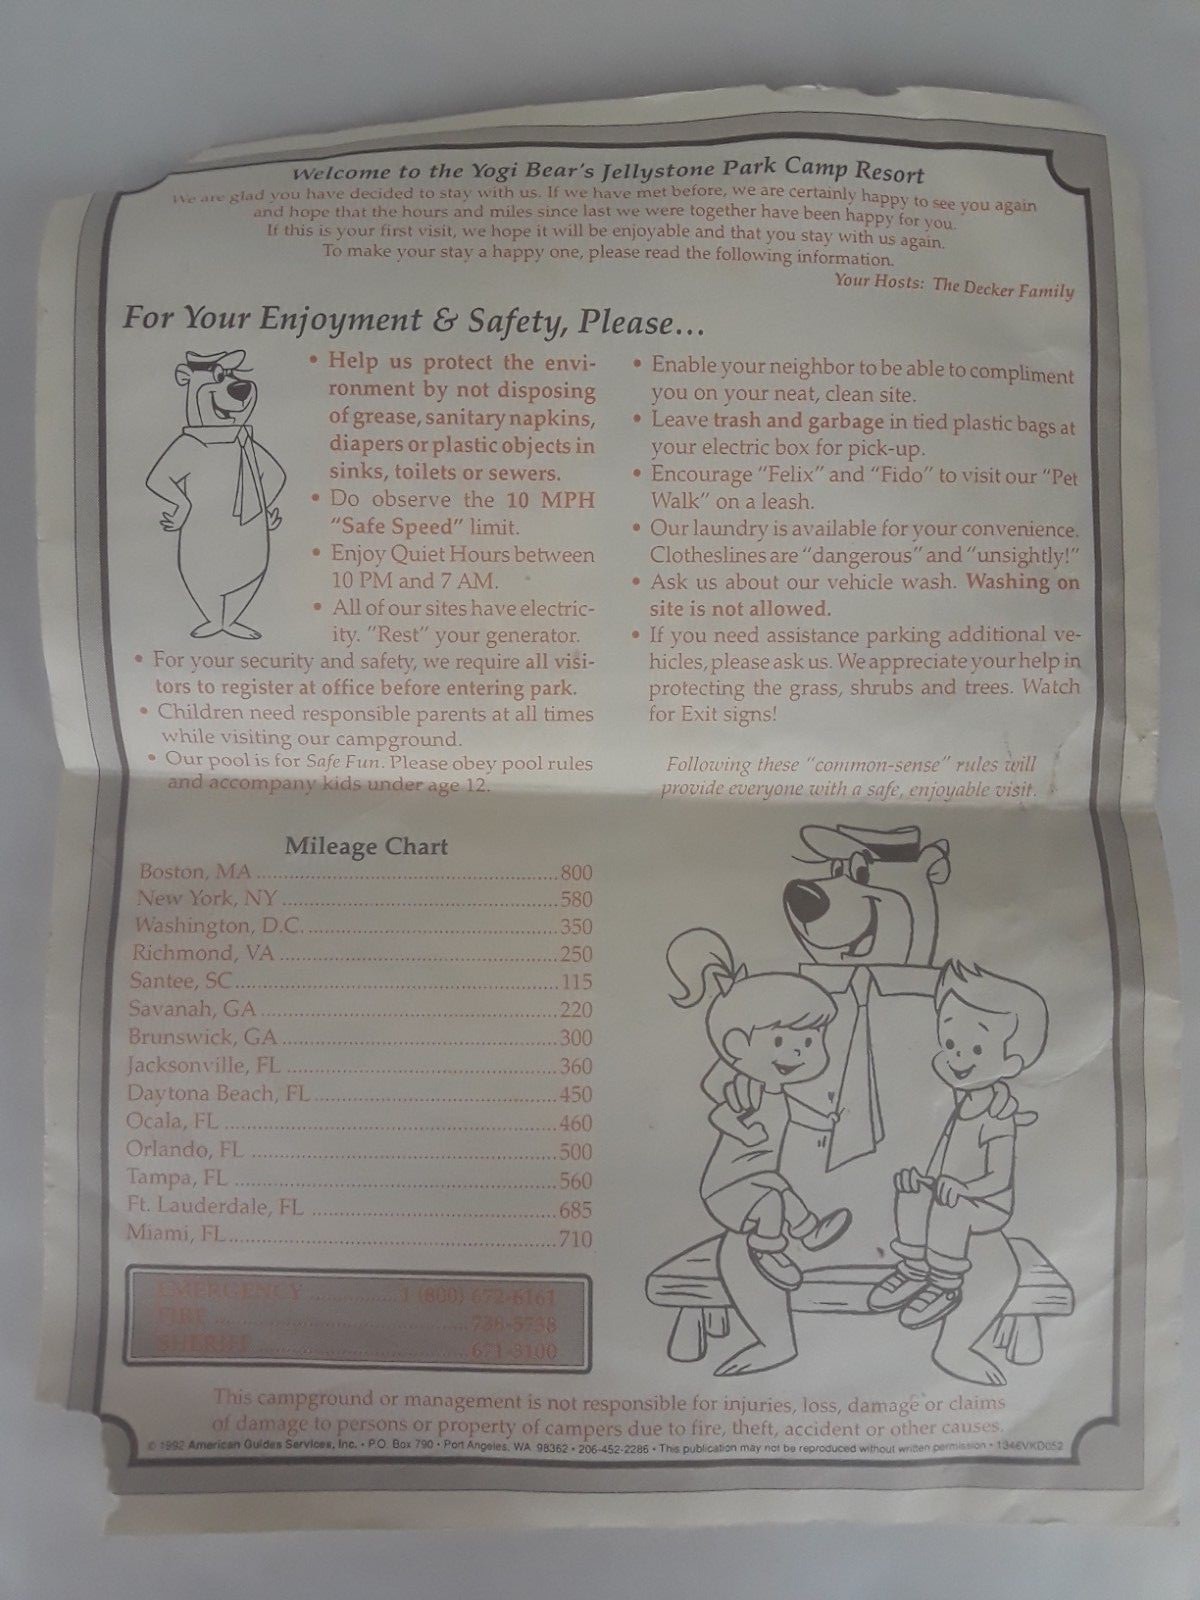 Welcome to the Yogi Bear's Jellystone Park Camp Resort
We are glad you have decided to stay with us. If we have met before, we are certainly happy to see you again
and hope that the hours and miles since last we were together have been happy for you.
If this is your first visit, we hope it will be enjoyable and that you stay with us again.
To make your stay a happy one, please read the following information.
Your Hosts: The Decker Family
For Your Enjoyment & Safety, Please...
• Help us protect the envi-
ronment by not disposing
of grease, sanitary napkins,
diapers or plastic objects in
sinks, toilets or sewers.
• Do observe the 10 MPH
"Safe Speed" limit.
• Enjoy Quiet Hours between
10 PM and 7 AM.
• All of our sites have electric-
ity. "Rest" your generator.
• For your security and safety, we require all visi-
tors to register at office before entering park.
• Children need responsible parents at all times
while visiting our campground.
• Our pool is for Safe Fun. Please obey pool rules
and accompany kids under age 12.
• Enable your neighbor to be able to compliment
you on your neat, clean site.
• Leave trash and garbage in tied plastic bags at
your electric box for pick-up.
• Encourage "Felix" and "Fido" to visit our "Pet
Walk" on a leash.
• Our laundry is available for your convenience.
Clotheslines are "dangerous" and "unsightly!"
• Ask us about our vehicle wash. Washing on
site is not allowed.
• If you need assistance parking additional ve-
hicles, please ask us. We appreciate your help in
protecting the grass, shrubs and trees. Watch
for Exit signs!
Following these "common-sense" rules will
provide everyone with a safe, enjoyable visit.
Mileage Chart
Boston, MA ... 800
New York, NY ... 580
Washington, D.C. ... 350
Richmond, VA ... 250
Santee, SC ... 115
Savanah, GA ... 220
Brunswick, GA ... 300
Jacksonville, FL ... 360
Daytona Beach, FL ... 450
Ocala, FL ... 460
Orlando, FL ... 500
Tampa, FL ... 560
Ft. Lauderdale, FL ... 685
Miami, FL ... 710
EMERGENCY ... 1 (800) 672-6161
FIRE ... 738-5738
SHERIFF ... 671-3100
This campground or management is not responsible for injuries, loss, damage or claims
of damage to persons or property of campers due to fire, theft, accident or other causes.
© 1992 American Guides Services, Inc. • P.O. Box 790 • Port Angeles, WA 98362 • 206-452-2286 • This publication may not be reproduced without written permission • 1346VKD052